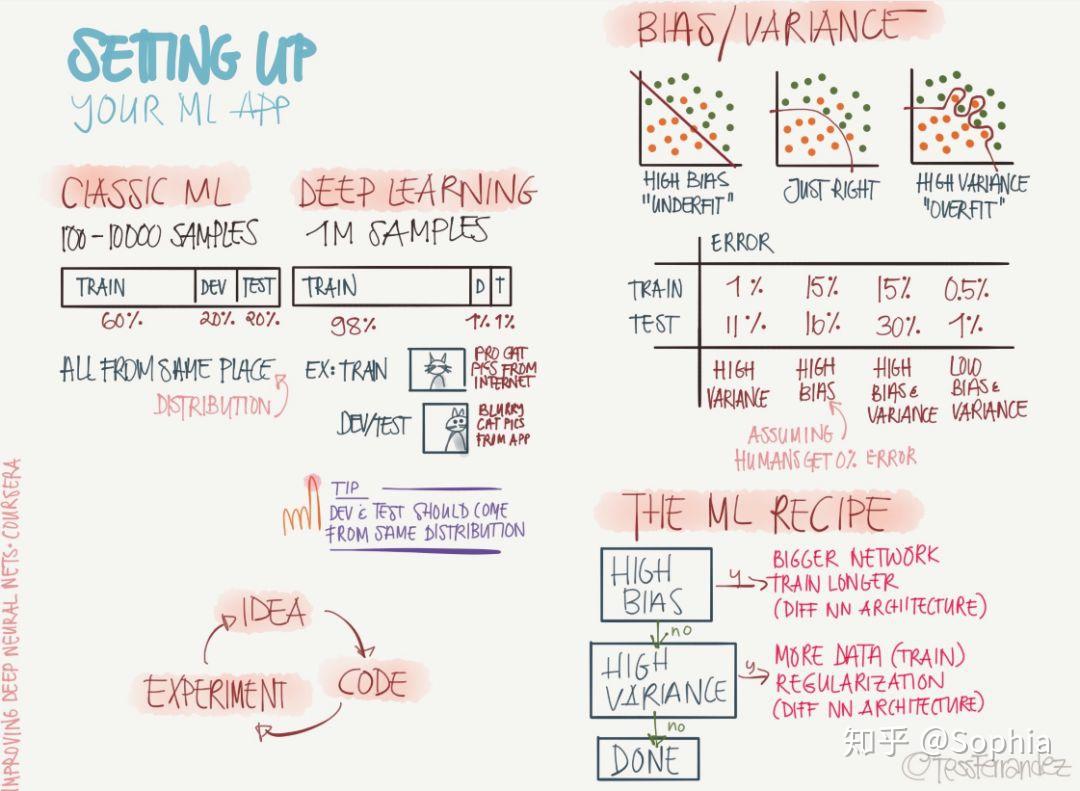 SETTING UP
YOUR ML APP
CLASSIC ML
100-10000 SAMPLES
TRAIN DEV TEST
60% 20% 20%
ALL FROM SAME PLACE
DISTRIBUTION
DEEP LEARNING
1M SAMPLES
TRAIN D T
98% 1% 1%
EX: TRAIN
PRO CAT
PICS FROM
INTERNET
DEV/TEST
BLURRY
CAT PICS
FROM APP
TIP
DEV & TEST SHOULD COME
FROM SAME DISTRIBUTION
IDEA
CODE
EXPERIMENT
IMPROVING DEEP NEURAL NETS · COURSERA
BIAS/VARIANCE
HIGH BIAS
"UNDERFIT"
JUST RIGHT
HIGH VARIANCE
"OVERFIT"
ERROR
TRAIN 1% 15% 15% 0.5%
TEST 11% 16% 30% 1%
HIGH
VARIANCE
HIGH
BIAS
HIGH
BIAS &
VARIANCE
LOW
BIAS &
VARIANCE
ASSUMING
HUMANS GET 0% ERROR
THE ML RECIPE
HIGH
BIAS
y
BIGGER NETWORK
TRAIN LONGER
(DIFF NN ARCHITECTURE)
no
HIGH
VARIANCE
y
MORE DATA (TRAIN)
REGULARIZATION
(DIFF NN ARCHITECTURE)
no
DONE
知乎 @Sophia
©TessFerrandez